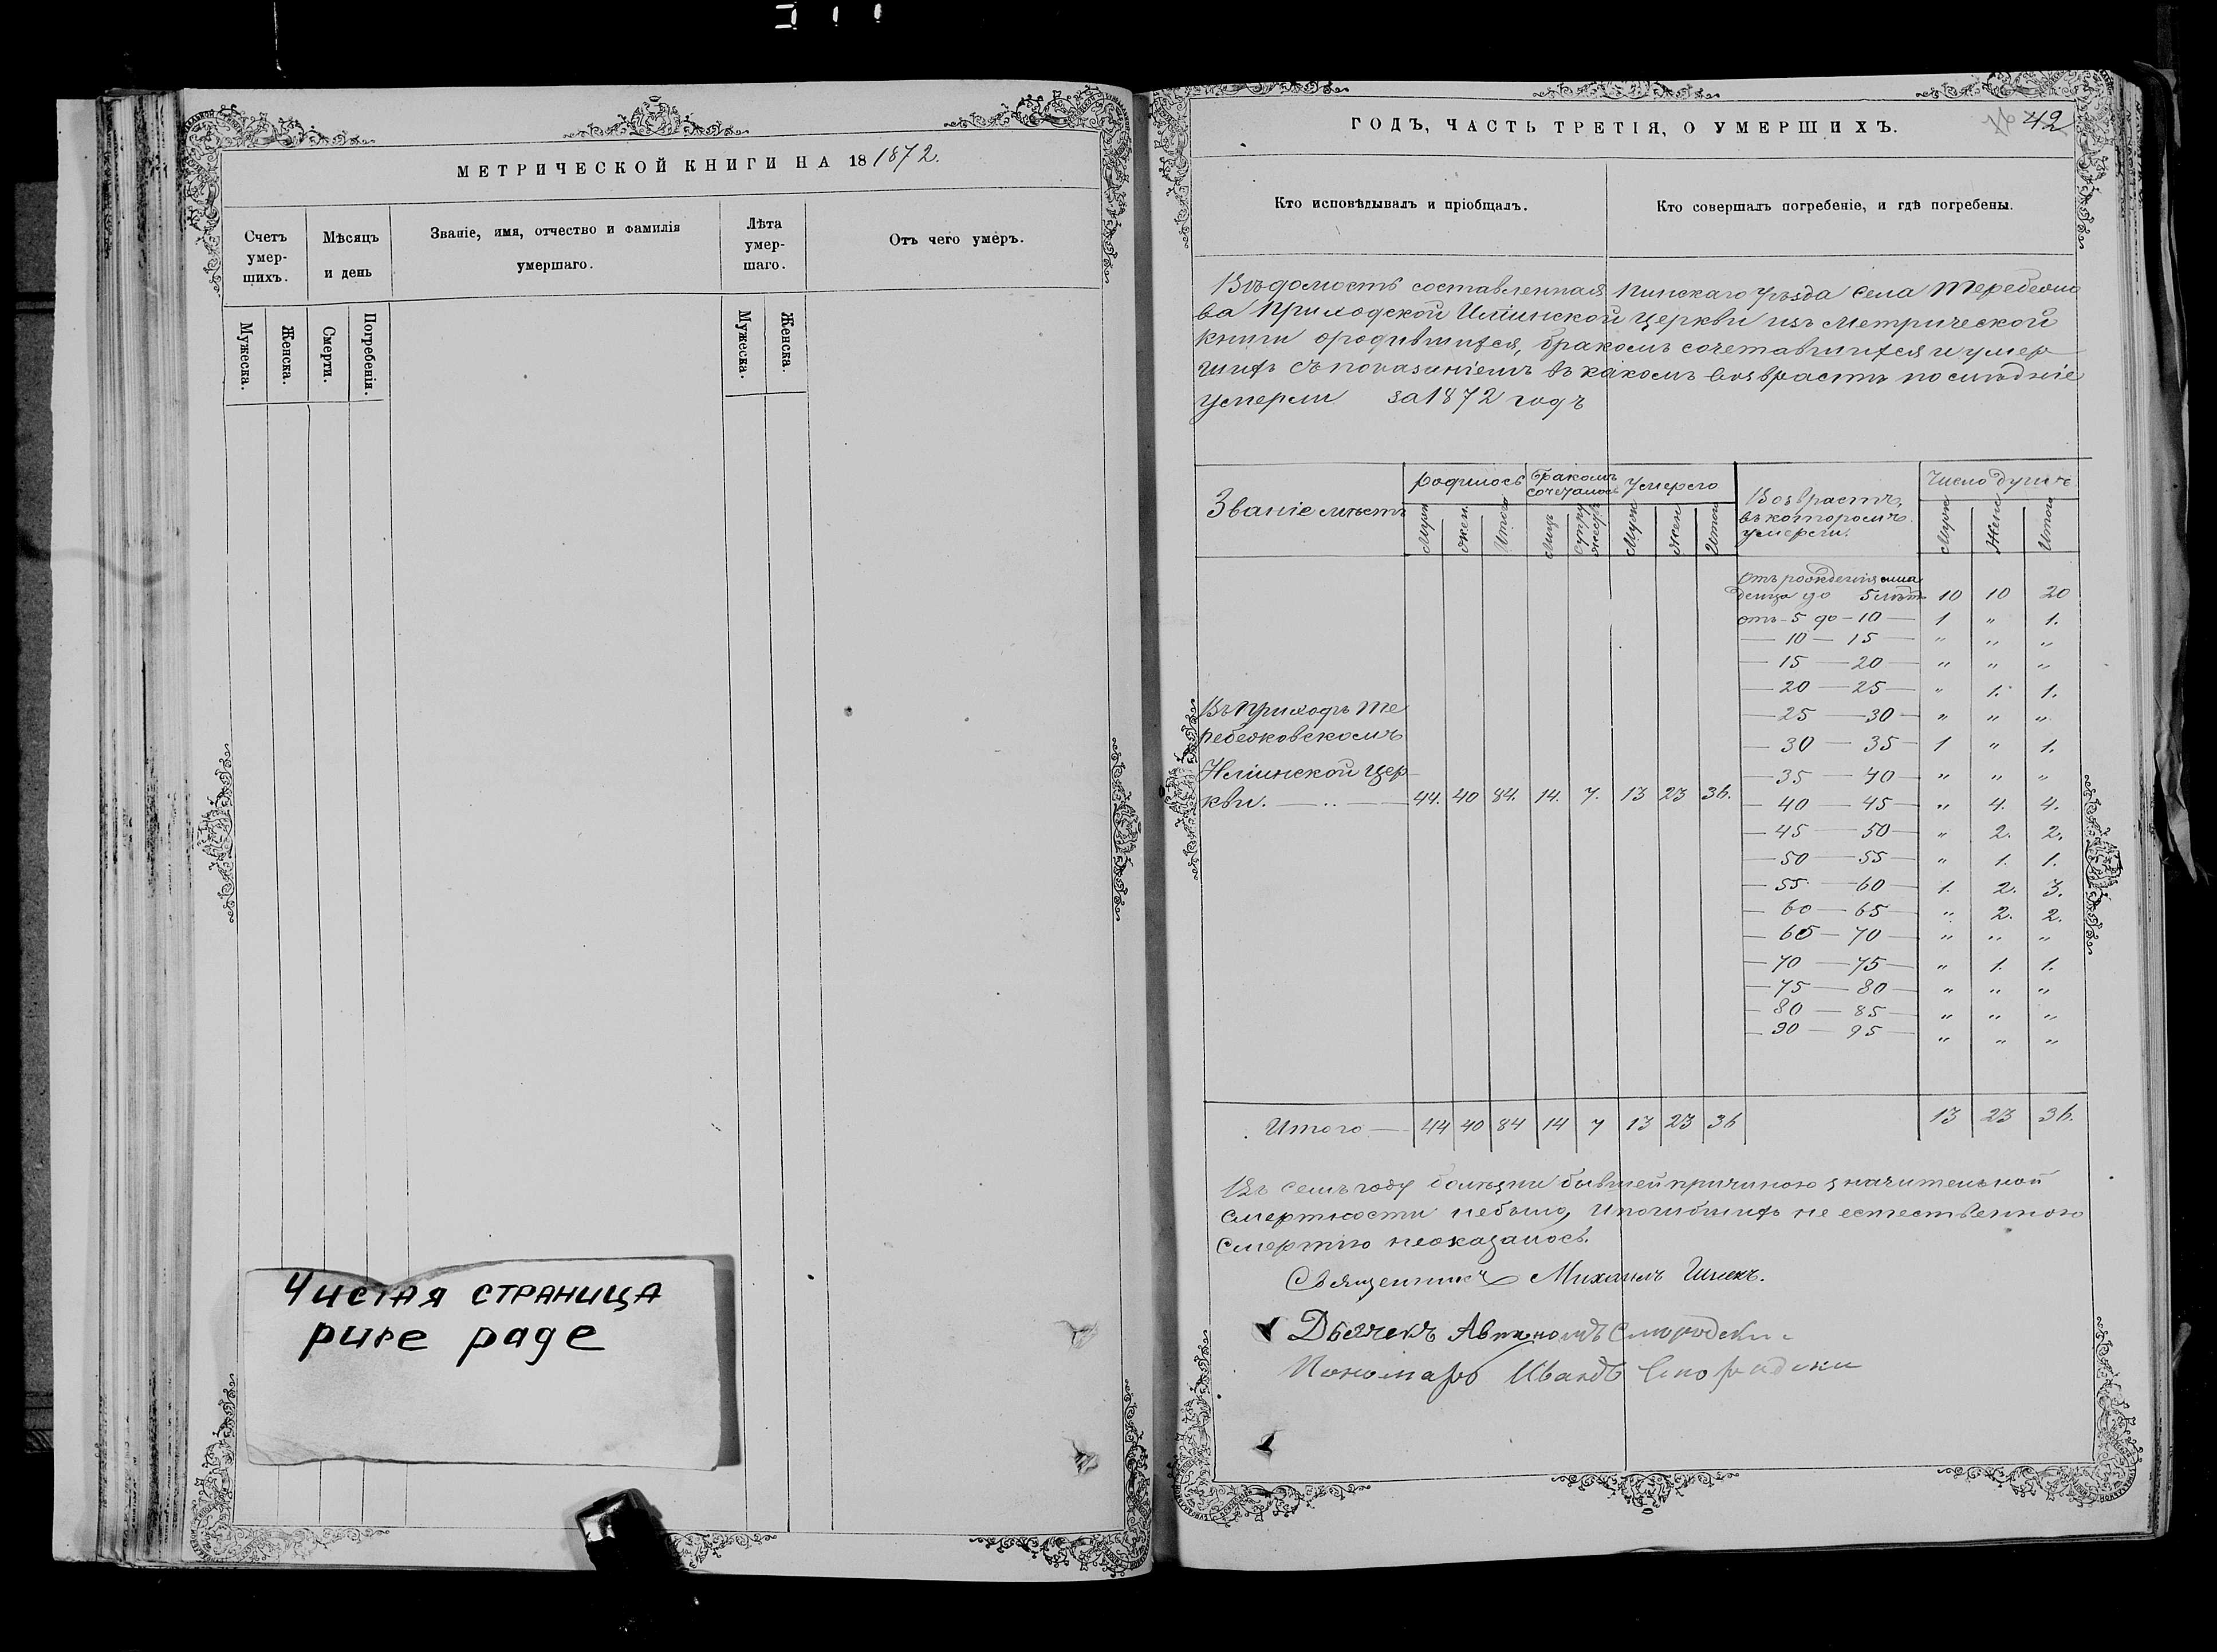 МЕТРИЧЕСКОЙ КНИГИ НА 18 1872.
Счетъ умер-шихъ.
Мѣсяцъ и день
Званіе, имя, отчество и фамилія умершаго.
Лѣта умер-шаго.
Отъ чего умеръ.
Мужеска.
Женска.
Смерти.
Погребенія.
Мужеска.
Женска.
Чистая страница
pure page
ГОДЪ, ЧАСТЬ ТРЕТІЯ, О УМЕРШИХЪ.
№ 42
Кто исповѣдывалъ и пріобщалъ.
Кто совершалъ погребеніе, и гдѣ погребены.
Вѣдомость составленная Пинскаго Уѣзда Села
ва Приходской Ильинской церкви изъ Метрической
книги о родившихся, бракомъ сочетавшихся и умер
шихъ съ показаніемъ въ какомъ возврастѣ послѣдніе
умерли за 1872 годъ
Званіе мѣстъ
Родилось
Бракомъ сочеталось
Умерло
Возврастъ, въ которомъ умерли.
Число душъ
Муж
Жен.
Итого
Лицъ
Супружествъ
Муж
Жен
Итого
Муж
Женс
Итого
Отъ рожденія мла
денца до 5 лѣтъ 10 10 20
отъ 5 до 10 — 1 " 1.
— 10 — 15 — " " "
— 15 — 20 — " " "
— 20 — 25 — " 1. 1.
— 25 — 30 — " " "
— 30 — 35 — 1 " 1.
— 35 — 40 — " " "
— 40 — 45 — " 4. 4.
— 45 — 50 — " 2. 2.
— 50 — 55 — " 1. 1.
— 55 — 60 — 1. 2. 3.
— 60 — 65 — " 2. 2.
— 65 — 70 — " " "
— 70 — 75 — " 1. 1.
— 75 — 80 — " " "
— 80 — 85 — " " "
— 90 — 95 — " " "
Въ приходѣ Те
ребежковскомъ
Ильинской цер
кви. — 44. 40 84. 14. 7. 13 23 36.
Итого — 44 40 84 14 7 13 23 36 13 23 36.
Въ семъ году болѣзни бывшей причиною значительной
смертности небыло, и погибшихъ не естественною
смертію неоказалось.
Священникъ Михаилъ
Дьячекъ
Пономарь Иванъ